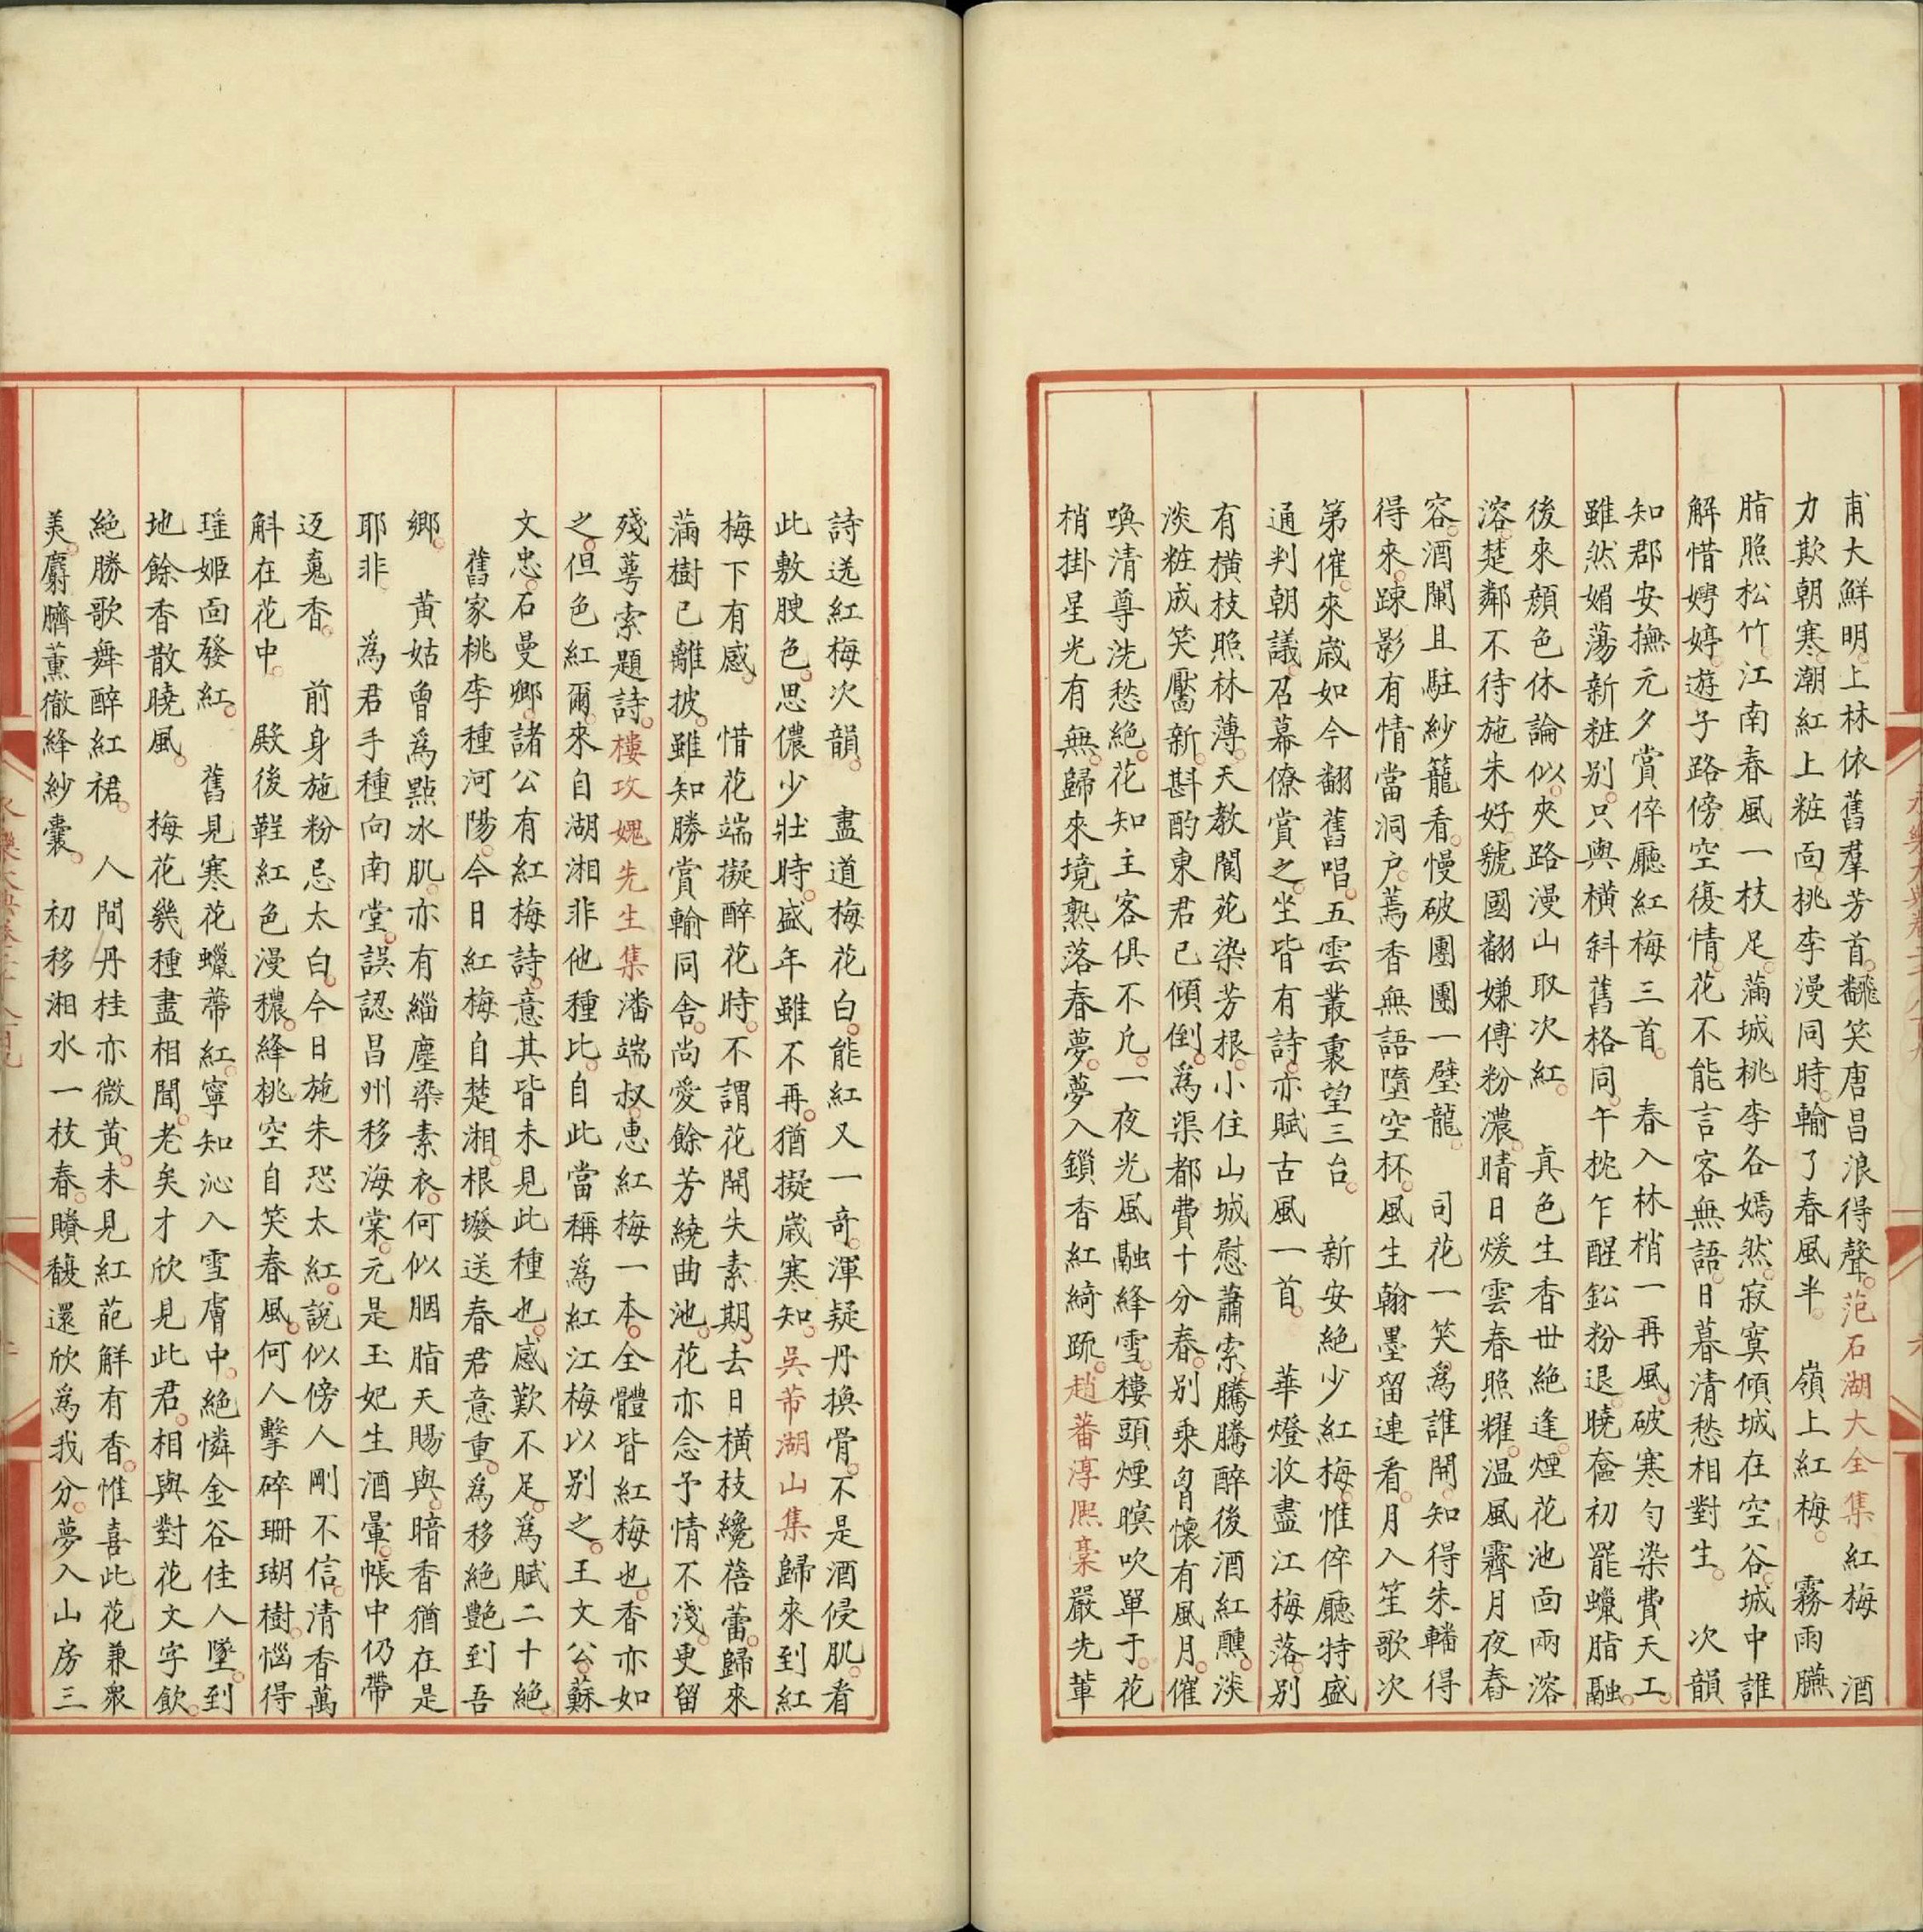 甫大鮮明上林依舊羣芳首翻笑唐昌浪得聲范石湖大全集紅梅　酒
力欺朝寒潮紅上粧面桃李漫同時輸了春風半　嶺上紅梅　霧雨臙
脂照松竹江南春風一枝足滿城桃李各嫣然寂寞傾城在空谷城中誰
解惜娉婷遊子路傍空復情花不能言客無語日暮清愁相對生　次韻
知郡安撫元夕賞倅廳紅梅三首　春入林梢一再風破寒勻染費天工
雖然媚蕩新粧别只與橫斜舊格同午枕乍醒鉛粉退曉奩初罷蠟脂融
後來顏色休論似夾路漫山取次紅　真色生香世絶逢煙花池面兩溶
溶楚鄰不待施朱好虢國翻嫌傅粉濃晴日煖雲春照耀温風霽月夜舂
容酒闌且駐紗籠看慢破團團一璧龍　司花一笑爲誰開知得朱轓得
得來踈影有情當洞户蔫香無語墮空杯風生翰墨留連看月入笙歌次
第催來歲如今翻舊唱五雲叢裏望三台　新安絶少紅梅惟倅廳特盛
通判朝議召幕僚賞之坐皆有詩亦賦古風一首　華燈收盡江梅落别
有橫枝照林薄天教閬苑染芳根小住山城慰蕭索騰騰醉後酒紅醺淡
淡粧成笑靨新斟酌東君已傾倒爲渠都費十分春别乗胷懷有風月催
喚清尊洗愁絶花知主客俱不凡一夜光風融絳雪樓頭煙暝吹單于花
梢掛星光有無歸來境熟落春夢夢入鎖香紅綺踈趙蕃淳熙稾嚴先輩
詩送紅梅次韻　盡道梅花白能紅又一奇渾疑丹換骨不是酒侵肌着
此敷腴色思儂少壯時盛年雖不再猶擬歲寒知吳芾湖山集歸來到紅
梅下有感　惜花端擬醉花時不謂花開失素期去日橫枝纔蓓蕾歸來
滿樹已離披雖知勝賞輸同舎尚愛餘芳繞曲池花亦念予情不淺更留
殘萼索題詩樓攻媿先生集潘端叔惠紅梅一本全體皆紅梅也香亦如
之但色紅爾來自湖湘非他種比自此當稱爲紅江梅以别之王文公蘇
文忠石曼卿諸公有紅梅詩意其皆未見此種也感歎不足爲賦二十絶
舊家桃李種河陽今日紅梅自楚湘根撥送春君意重爲移絶艶到吾
鄉　黄姑曾爲點冰肌亦有緇塵染素衣何似胭脂天賜與暗香猶在是
耶非　爲君手種向南堂誤認昌州移海棠元是玉妃生酒暈帳中仍帶
返䰟香　前身施粉忌太白今日施朱恐太紅說似傍人剛不信清香萬
斛在花中　殿後鞓紅色漫穠絳桃空自笑春風何人擊碎珊瑚樹惱得
瑶姬面發紅　舊見寒花蠟蔕紅寧知沁入雪膚中絶憐金谷佳人墜到
地餘香散曉風　梅花幾種盡相聞老矣才欣見此君相與對花文字飲
絶勝歌舞醉紅裙　人間丹桂亦微黄未見紅葩鮮有香惟喜此花兼衆
美麝臍薰徹絳紗囊　初移湘水一枝春賸馥還欣爲我分夢入山房三